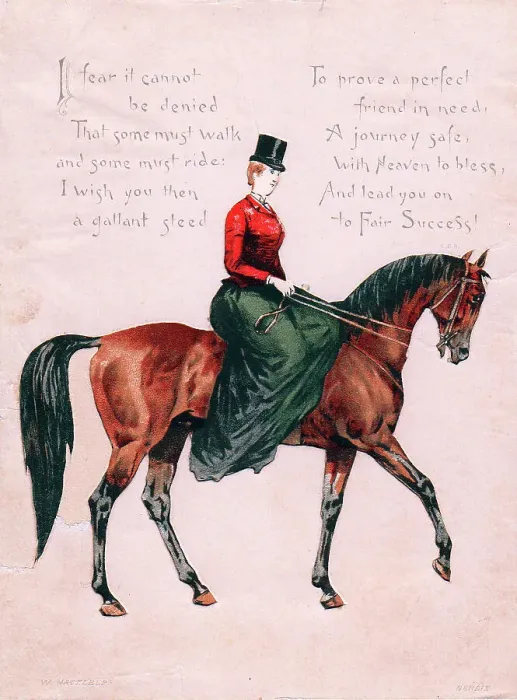 I fear it cannot
be denied
That some must walk
and some must ride:
I wish you then
a gallant steed
To prove a perfect
friend in need,
A journey safe,
With Heaven to bless,
And lead you on
to Fair Success!